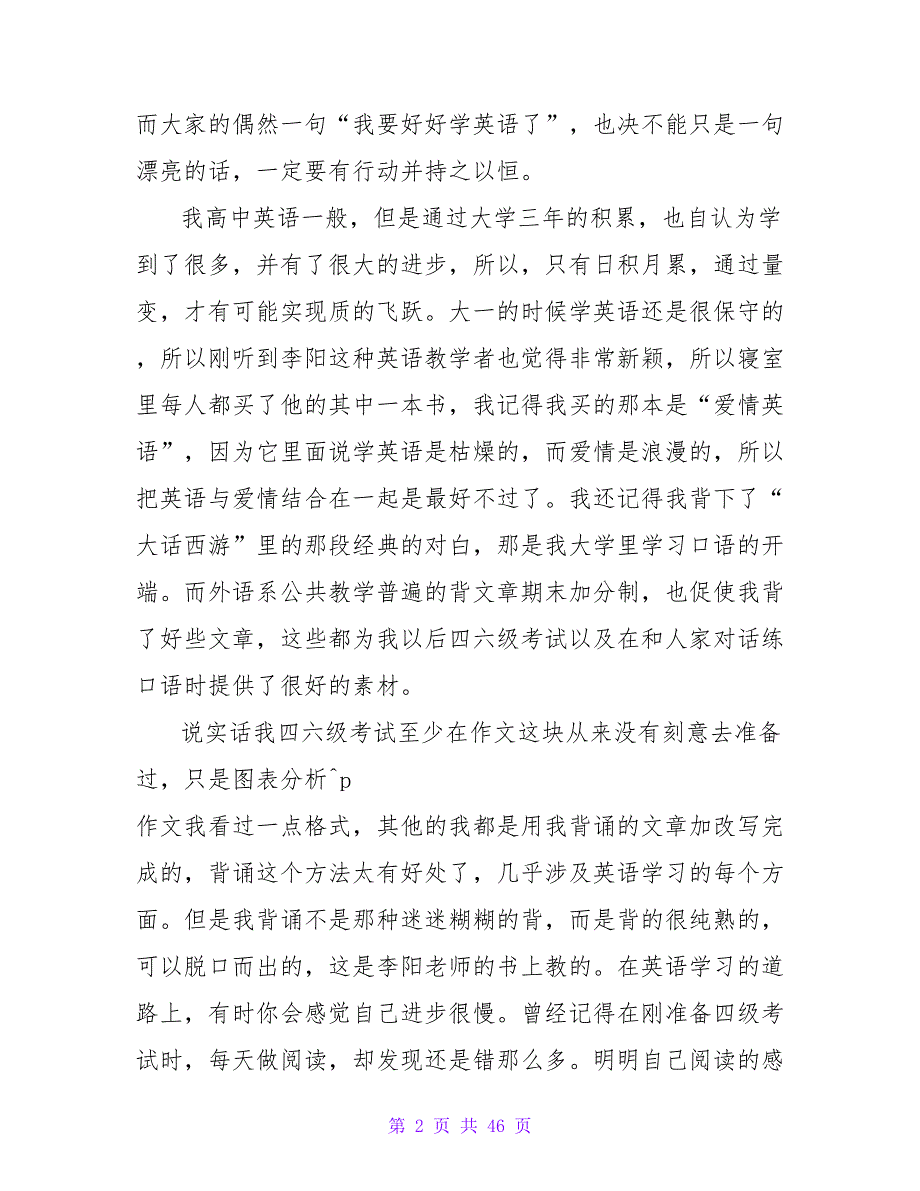 而大家的偶然一句“我要好好学英语了”，也决不能只是一句
漂亮的话，一定要有行动并持之以恒。
我高中英语一般，但是通过大学三年的积累，也自认为学
到了很多，并有了很大的进步，所以，只有日积月累，通过量
变，才有可能实现质的飞跃。大一的时候学英语还是很保守的
，所以刚听到李阳这种英语教学者也觉得非常新颖，所以寝室
里每人都买了他的其中一本书，我记得我买的那本是“爱情英
语”，因为它里面说学英语是枯燥的，而爱情是浪漫的，所以
把英语与爱情结合在一起是最好不过了。我还记得我背下了“
大话西游”里的那段经典的对白，那是我大学里学习口语的开
端。而外语系公共教学普遍的背文章期末加分制，也促使我背
了好些文章，这些都为我以后四六级考试以及在和人家对话练
口语时提供了很好的素材。
说实话我四六级考试至少在作文这块从来没有刻意去准备
过，只是图表分析^p
作文我看过一点格式，其他的我都是用我背诵的文章加改写完
成的，背诵这个方法太有好处了，几乎涉及英语学习的每个方
面。但是我背诵不是那种迷迷糊糊的背，而是背的很纯熟的，
可以脱口而出的，这是李阳老师的书上教的。在英语学习的道
路上，有时你会感觉自己进步很慢。曾经记得在刚准备四级考
试时，每天做阅读，却发现还是错那么多。明明自己阅读的感
第 2 页 共 46 页